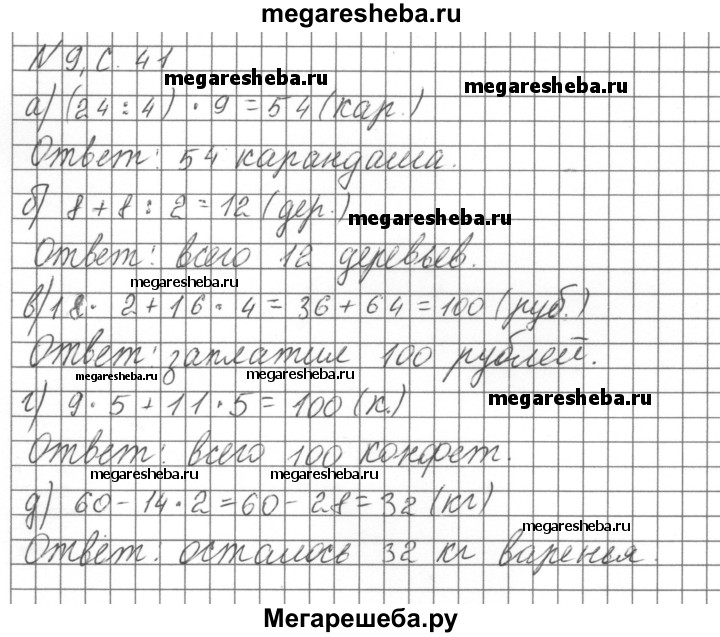 megaresheba.ru
N 9, с. 41
megaresheba.ru
megaresheba.ru
а) (24 : 4) · 9 = 54 (кар.)
Ответ: 54 карандаша.
б) 8 + 8 : 2 = 12 (дер.)
megaresheba.ru
Ответ: всего 12 деревьев.
megaresheba.ru
в) 18 · 2 + 16 · 4 = 36 + 64 = 100 (руб.)
Ответ: заплатил 100 рублей.
megaresheba.ru
megaresheba.ru
г) 9 · 5 + 11 · 5 = 100 (к.)
megaresheba.ru
Ответ: всего 100 конфет.
megaresheba.ru
megaresheba.ru
д) 60 - 14 · 2 = 60 - 28 = 32 (кг)
megaresheba.ru
Ответ: осталось 32 кг варенья.
Мегарешеба.ру